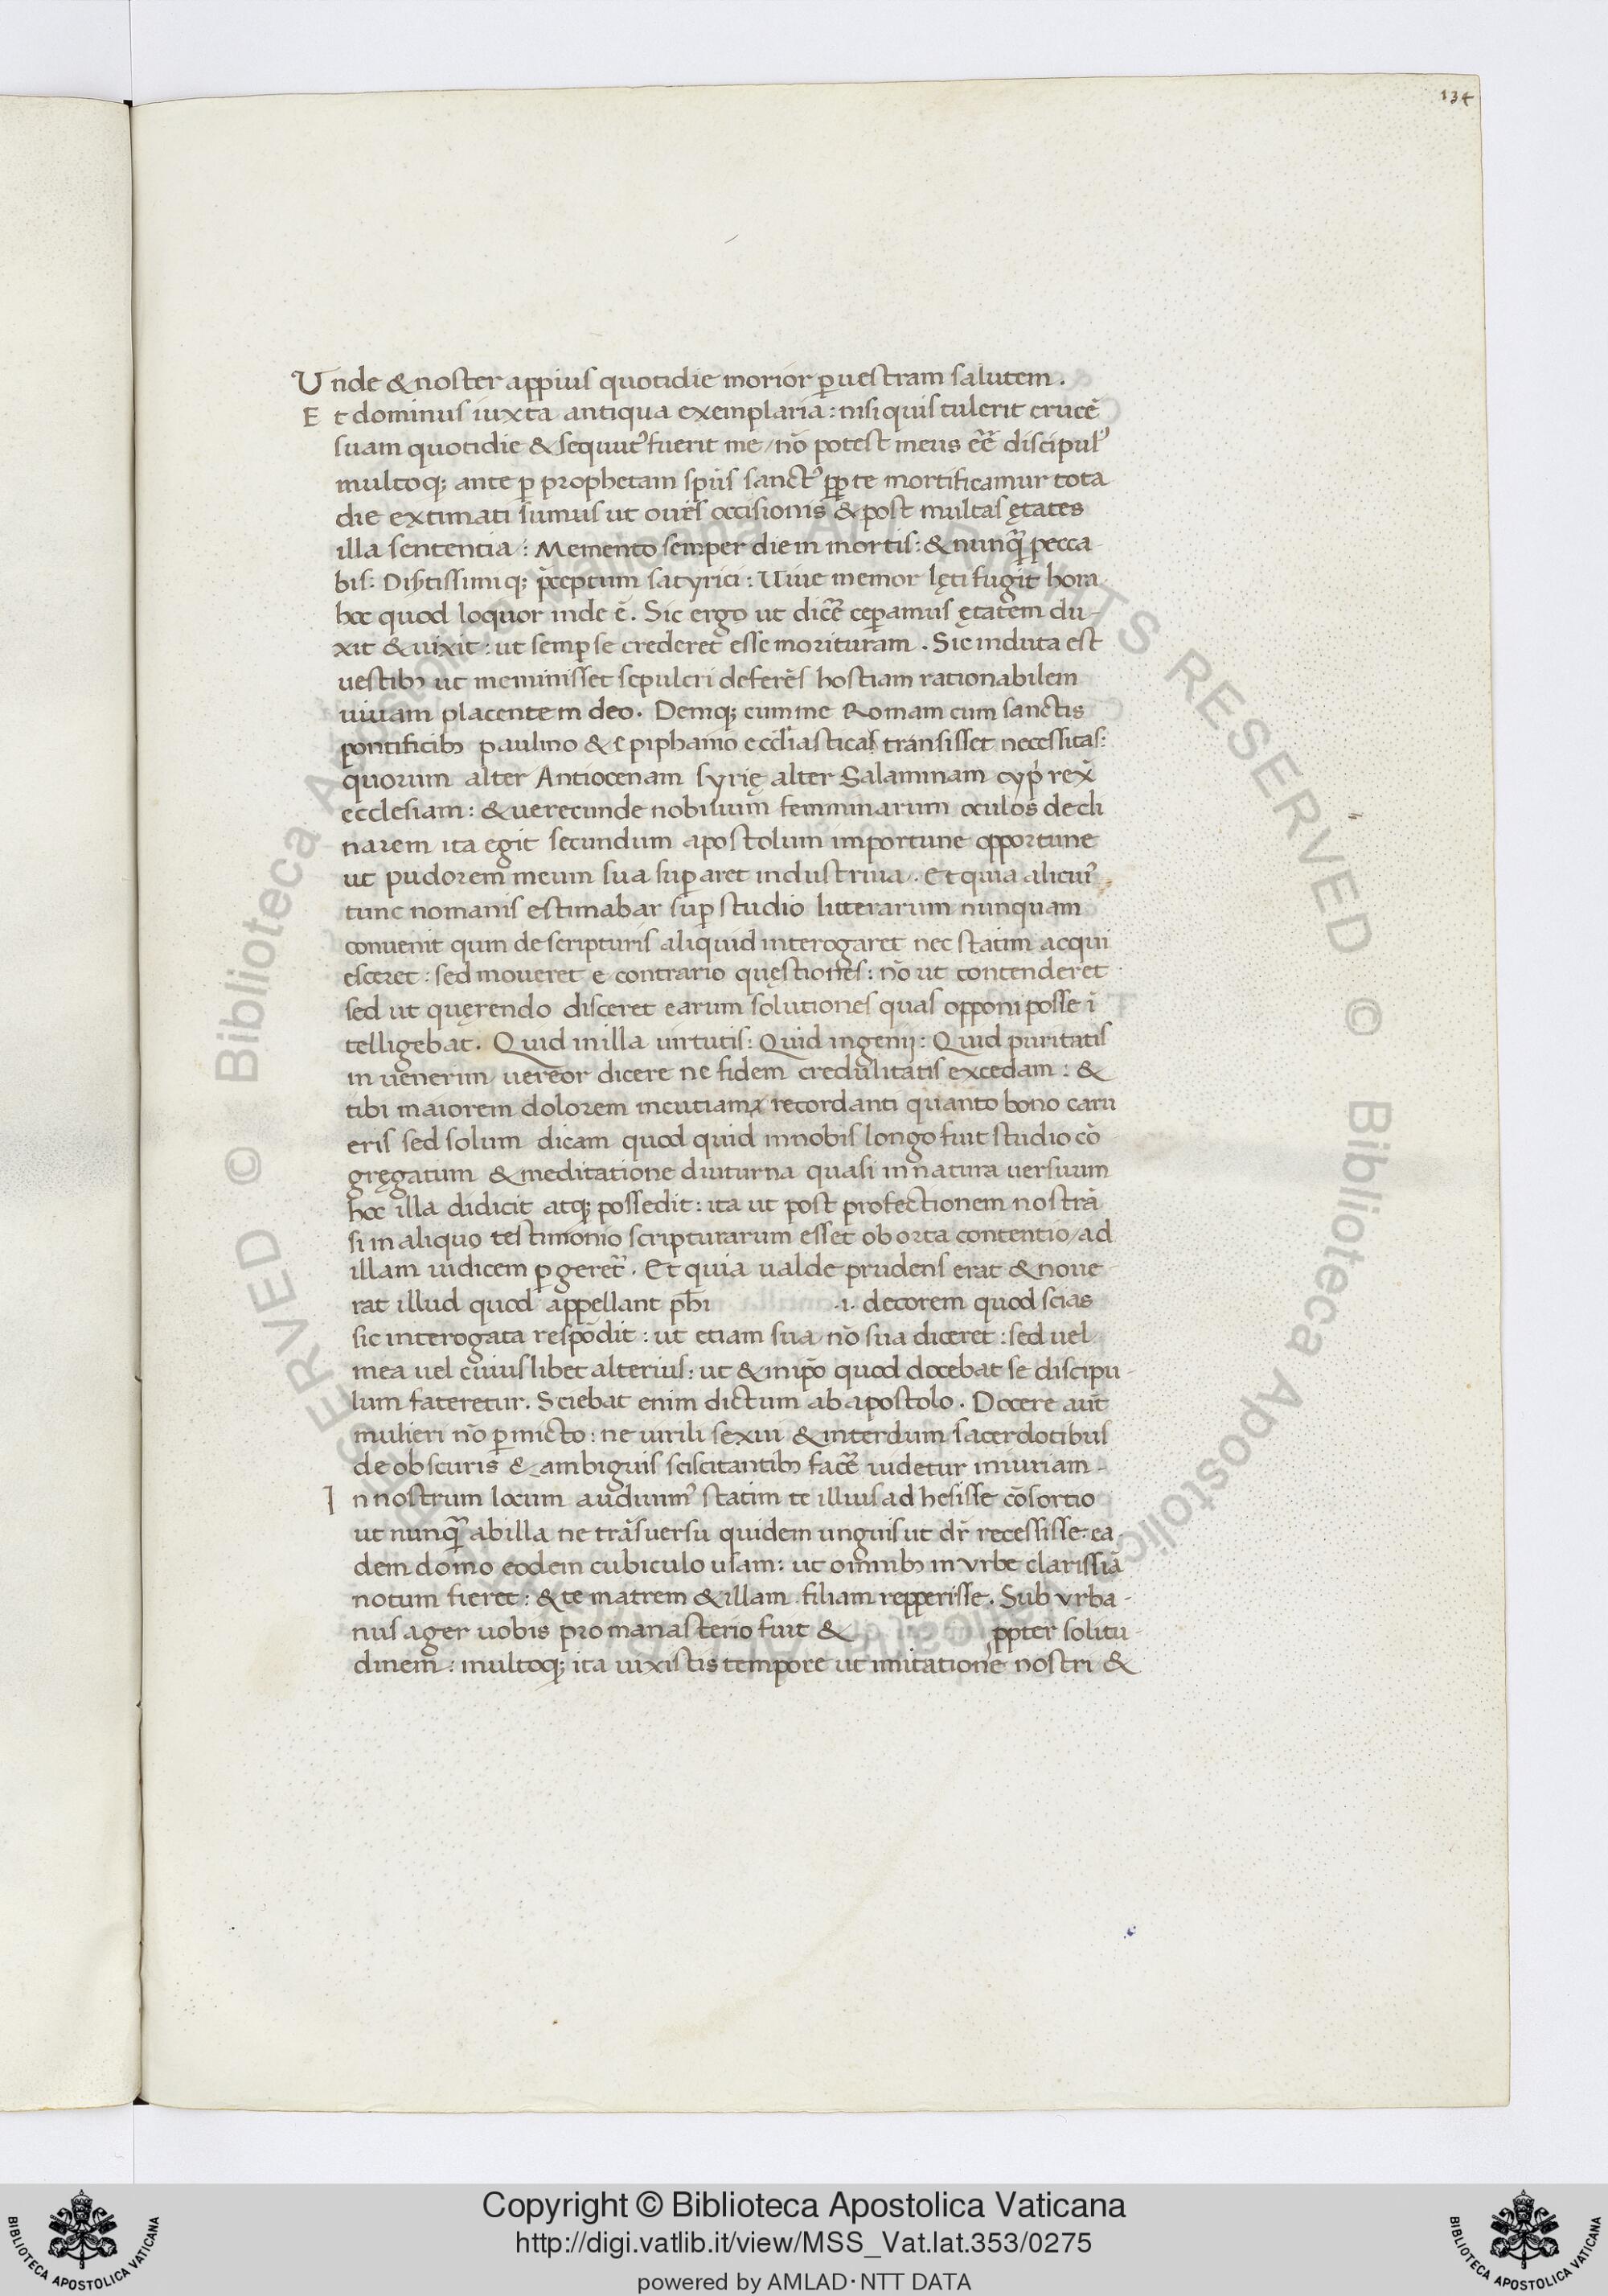 134
Unde & noster appius quotidie morior p̱ uestram salutem .
Et dominus iuxta antiqua exemplaria : nisi quis tulerit crucē
suam quotidie & sequut᾽ fuerit me / nō potest meus eē̃ discipul᾽
multoq; ante p̱ prophetam sp̄us sanct᾽ pp̱ te mortificamur tota
die extimati sumus ut oues occisionis & post multas ętates
illa sententia : Memento semper diem mortis : & nunq̃ pecca
bis : Disertissimiq; p̄ceptum satyrici : Uiue memor lęti fugit hora
hoc quod loquor inde ē . Sic ergo ut dicē̃ cep̱amus ętatem du-
xit & uixit : ut semp̱ se crederet esse morituram . Sic induta est
uestibꝫ ut meminisset sepulcri deferēs hostiam rationabilem
uiuam placentem deo . Deniq; cum me Romam cum sanctis
pontificibꝫ paulino & epiphanio eccl̄iasticas transisset necessitas :
quorum alter Antiocenam syrię alter Salaminam cypri rex̄
ecclesiam : & uerecunde nobilium feminarum oculos decli
narem ita egit secundum apostolum importune opportune
ut pudorem meum sua sup̱aret industriua . Et quia alicui᾽
tunc nomanis estimabar sup̱ studio litterarum nunquam
conuenit qum de scripturis aliquid interogaret nec statim acqui
esceret : sed moueret e contrario quęstiones : nō ut contenderet
sed ut quęrendo disceret earum solutiones quas opponi posse ī
telligebat . Quid in illa uirtutis : Quid ingenij : Quid puritatis
in uenerim / uereor dicere ne fidem credulitatis excedam : &
tibi maiorem dolorem incutiam recordanti quanto bono caru
eris sed solum dicam quod quid in nobis longo fuit studio cō
gręgatum & meditatione diuturna quasi in natura uersuum
hoc illa didicit atq; possedit : ita ut post profectionem nostrā
si in aliquo testimonio scripturarum esset ob orta contentio / ad
illam iudicem p̱geret᷑ . Et quia ualde prudens erat & noue
rat illud quod appellant ph̄i .i. decorem quod scias
sic interogata respōdit : ut etiam sua nō sua diceret : sed uel
mea uel cuius libet alterius : ut & in ip̄o quod docebat se discipu-
lum fateretur . Sciebat enim dictum ab apostolo . Docere aūt
mulieri nō p̱micto : ne uirili sexui & interdum sacerdotibus
de obscuris & ambiguis sciscitantibꝫ facē̃ uidetur iniuriam -
In nostrum locum audiuim᾽ statim te illius ad hesisse cōsortio
ut nunq̃ ab illa ne trāsuersu quidem unguis ut dr̄ recessisse : ea
dem domo eodem cubiculo usam : ut omnibꝫ in vrbe clarissiā
notum fieret : & te matrem & illam filiam repperisse . Sub vrba-
nus ager uobis pro manasterio fuit & ppter solitu-
dinem : multoq; ita uixistis tempore ut imitatione nostri &
Copyright © Biblioteca Apostolica Vaticana
http://digi.vatlib.it/view/MSS_Vat.lat.353/0275
powered by AMLAD·NTT DATA